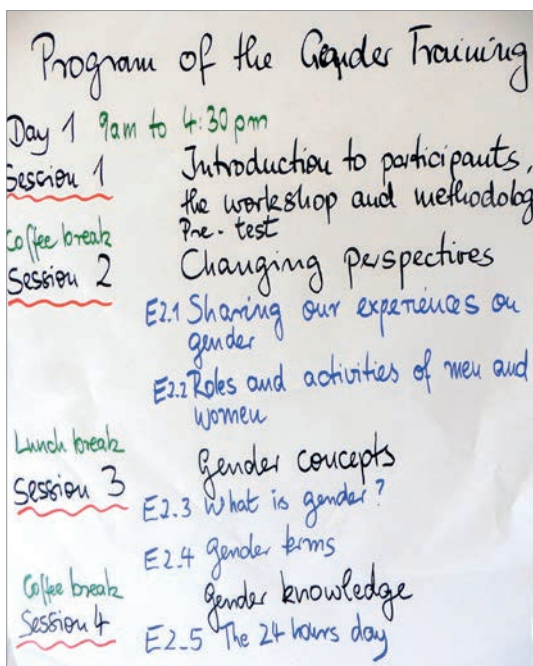 Program of the Gender Training
Day 1 9am to 4:30pm
Session 1 Introduction to participants,
the workshop and methodolog
Pre-test
Coffee break
Session 2 Changing perspectives
E2.1 Sharing our experiences on
gender
E2.2 Roles and activities of men and
women
Lunch break
Session 3 Gender concepts
E2.3 What is gender?
E2.4 Gender terms
Coffee break
Session 4 Gender knowledge
E2.5 The 24 hours day